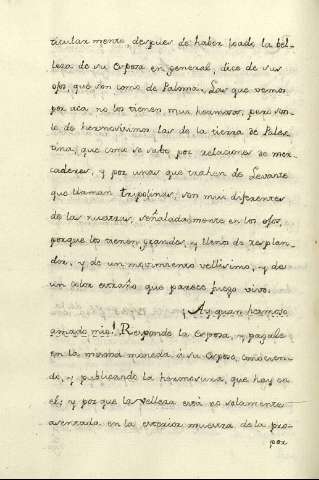 ticular mente, despues de haber loado la bel-
leza de su esposa en general, dice de sus
ojos, que son como de Paloma. Las que vemos
por aca no los tienen mui hermosos, pero son-
lo de hermosisimos las de la tierra de Pales-
tina; que como se sabe por relaciones de mer-
caderes, y por unas que trahen de Levante
que llaman tripolinas, son mui diferentes
de las nuestras, señaladamente en los ojos,
porque los tienen grandes, y llenos de resplan-
dor, y de un movimiento vellisimo, y de
un color estraño que parece fuego vivo.
Ay quan hermoso
amado mio! Responde la esposa, y pagale
en la misma moneda á su esposo, conocien-
do, y publicando la hermosura, que hay en
el; y por que la velleza está no solamente
asentada en la exterior muestra de la pro-
por